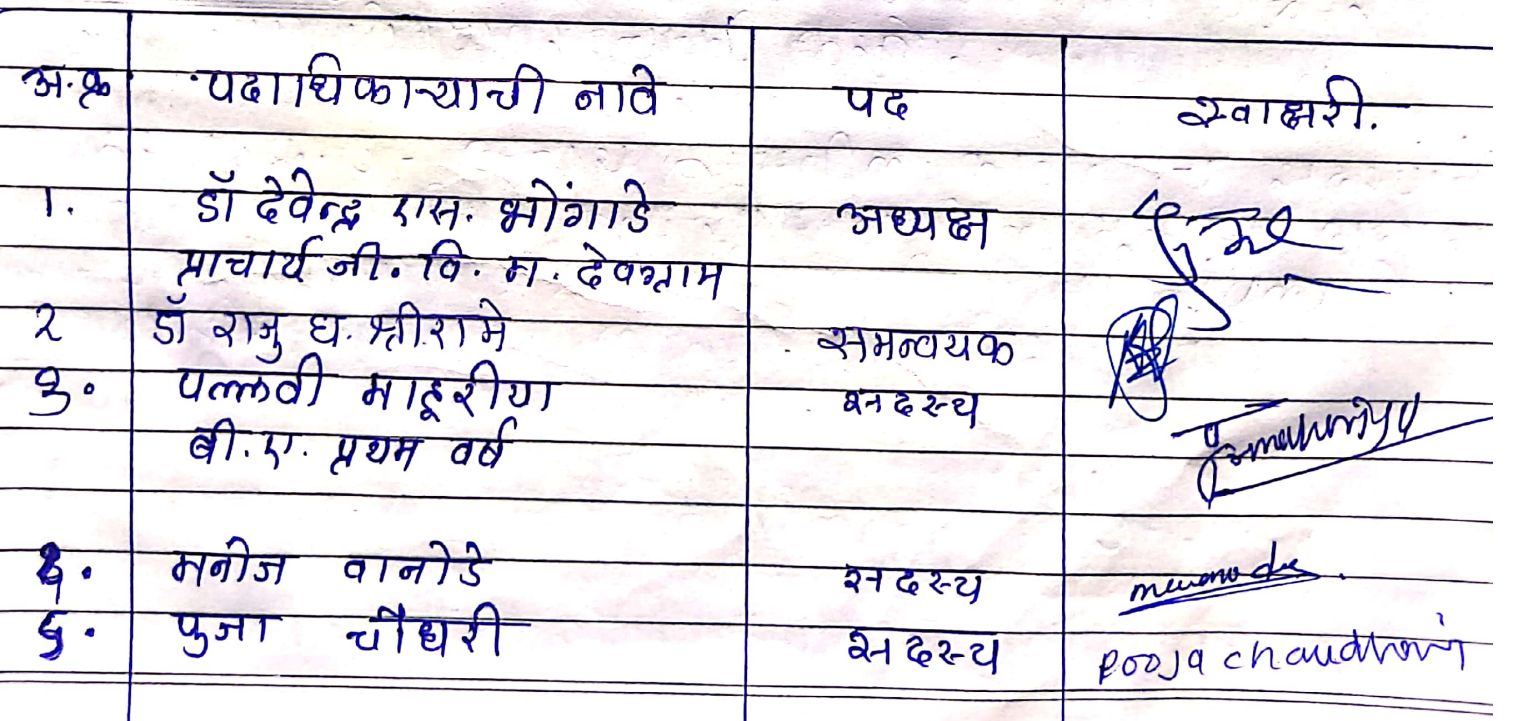 अ.क्र पदाधिकाऱ्याची नावे पद स्वाक्षरी.
1. डॉ देवेन्द्र एस. भोंगाडे अध्यक्ष
प्राचार्य जी. वि. म. देवग्राम
२ डॉ राजु घ. श्रीरामे समन्वयक
३. पल्लवी माहूरीया सदस्य
बी.ए. प्रथम वर्ष
मनोज वानोडे सदस्य
पुजा चौधरी सदस्य Pooja chaudhari